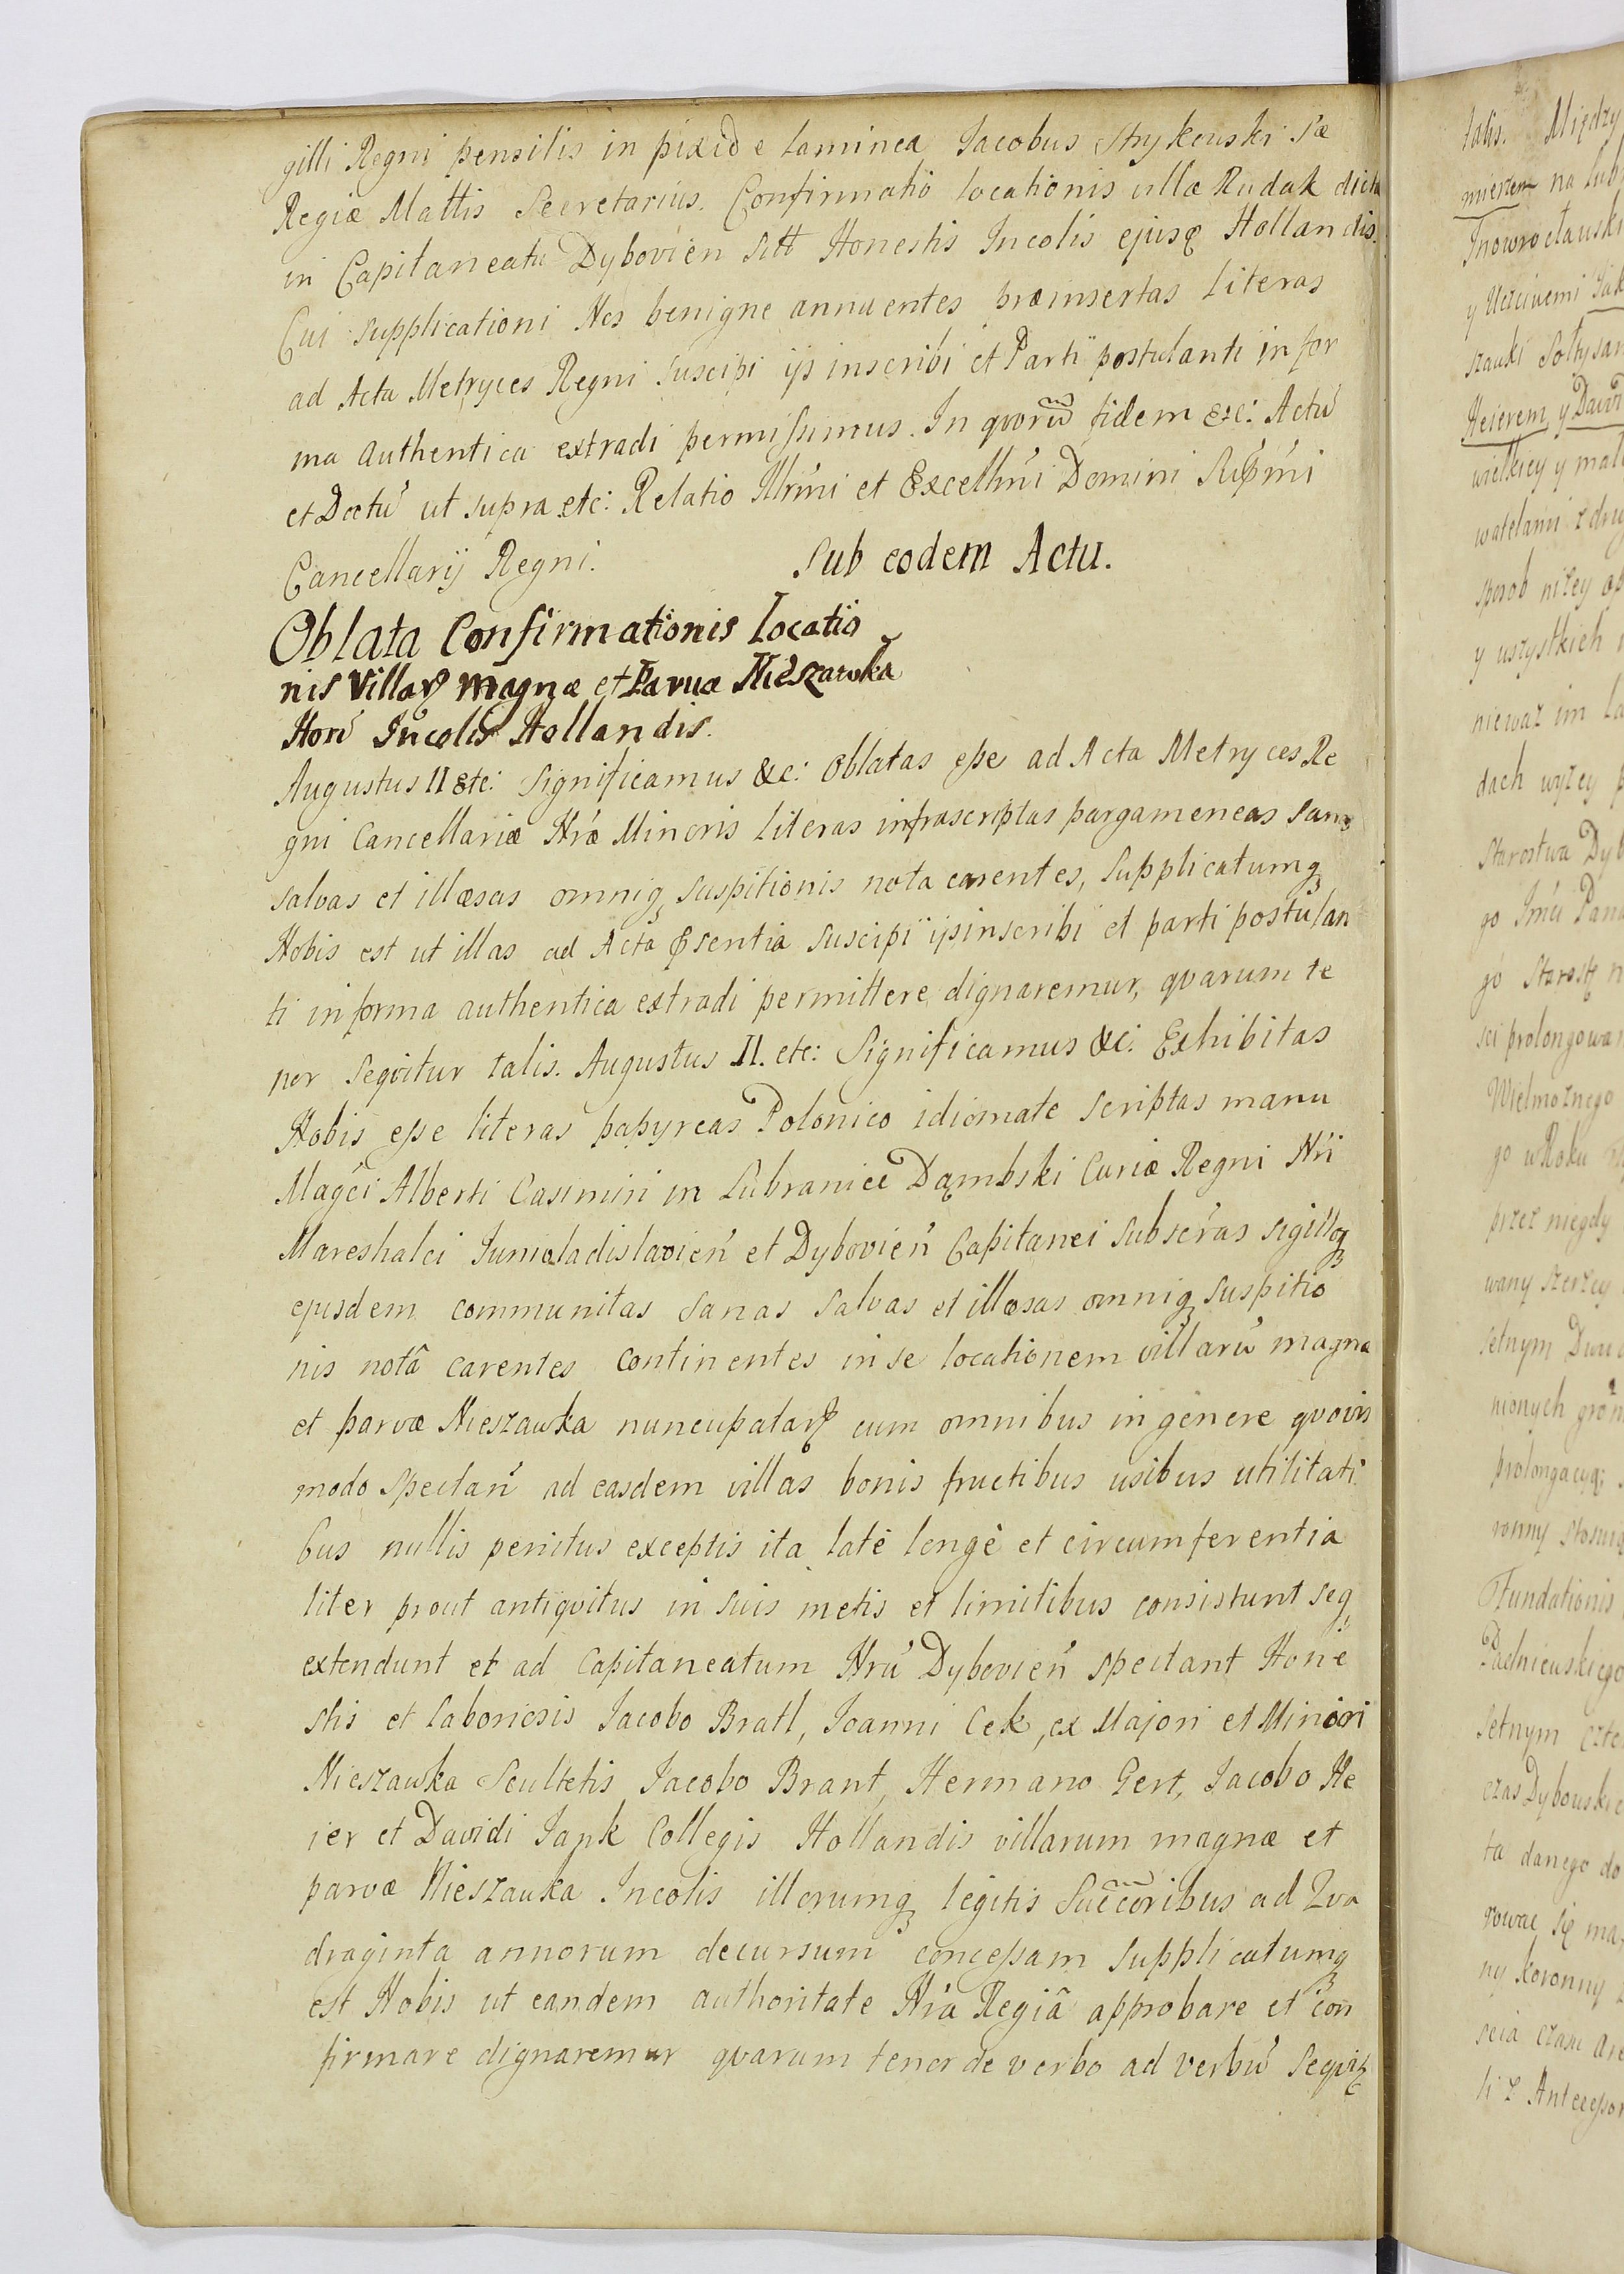 gilli Regni pensilis in pixide laminea Jacobus Strykowski Sæ
Regiæ Mattis Secretarius. Confirmatio locationis villæ Rudak dicta
in Capitaneatu Dybovien sitt Honestis Incolis ejusq Hollandis.
Cui supplicationi Nos benigne annuentes præinsertas literas
ad Acta Metryces Regni suscipi ijs inscribi et Parti postulanti in for
ma authentica extradi permissimus. In qvorũ fidem etc: Actũ
et Datũ ut supra etc: Relatio Illrmi et Excellmi Domini Supmi
Cancellarij Regni. Sub eodem Actu.
Oblata Confirmationis Locatio
nis Villaꝝ Magnæ et Parvæ Nieszawka
Hon Incolis Hollandis.
Augustus II etc: Significamus &c: Oblatas esse ad Acta Metryces Re
gni Cancellariæ Nræ Minoris literas infrascriptas pargameneas sanas
salvas et illæsas omniq suspitionis nota carentes, supplicatumq
Nobis est ut illas ad Acta ꝓsentia suscipi ijsinscribi et parti postulan
ti in forma authentica extradi permittere dignaremur, qvarum te
nor seqvitur talis. Augustus II. etc: Significamus &c: Exhibitas
Nobis esse literas papyreas Polonico idiomate scriptas manu
Magci Alberti Casimiri in Lubraniec Dąmbski Curiæ Regni Nri
Mareshalci Juniwladislavien et Dybovien Capitanei Subscras sigilloq
ejusdem communitas sanas salvas et illæsas omniq suspitio
nis notâ carentes continentes in se locationem villarũ magna
et parvæ Nieszawka nuncupataꝝ cum omnibus in genere qvovis
modo spectan ad easdem villas bonis fructibus usibus utilitati
bus nullis penitus exceptis ita late longè et circumferentia
liter prout antiqvitus in suis metis et limitibus consistunt seq
extendunt et ad Capitaneatum Nrũ Dybovien spectant Hone
stis et laboriosis Jacobo Bratl, Joanni Cek, ex Majori et Minori
Nieszawka Scultetis Jacobo Brant, Hermano Gert, Jacobo He
ier et Davidi Jank Collegis Hollandis villarum magnæ et
parvæ Nieszawka Incolis illorumq legitis Succoribus ad Qva
draginta annorum decursum concessam supplicatumq
est Nobis ut eandem authoritate Nra Regiâ approbare et con
firmare dignaremur qvarum tenor de verbo ad verbũ seqvit
talis. Między
mierzem na Lub
Inowrocławski
y Uczciwemi Jak
szawki Sołtysam
Heierem y Dawi
wielkiey y mał
watelami z drug
sposob niżey op
y wszystkich
niewaz im la
dach wyżey p
Starostwa Dyb
go Jmci Pana
go Starostę n
sci prolongowan
Wielmożnego
go w Roku
przez niegdy
wany szerzey
setnym Dwu
nionych gron
prolongacyą
ronny stosuią
Fundationis
Padniewskiego
setnym czte
czas Dybowski
ta danego do
rować się ma
ny koronny
scia czasu are
li z Antecessor